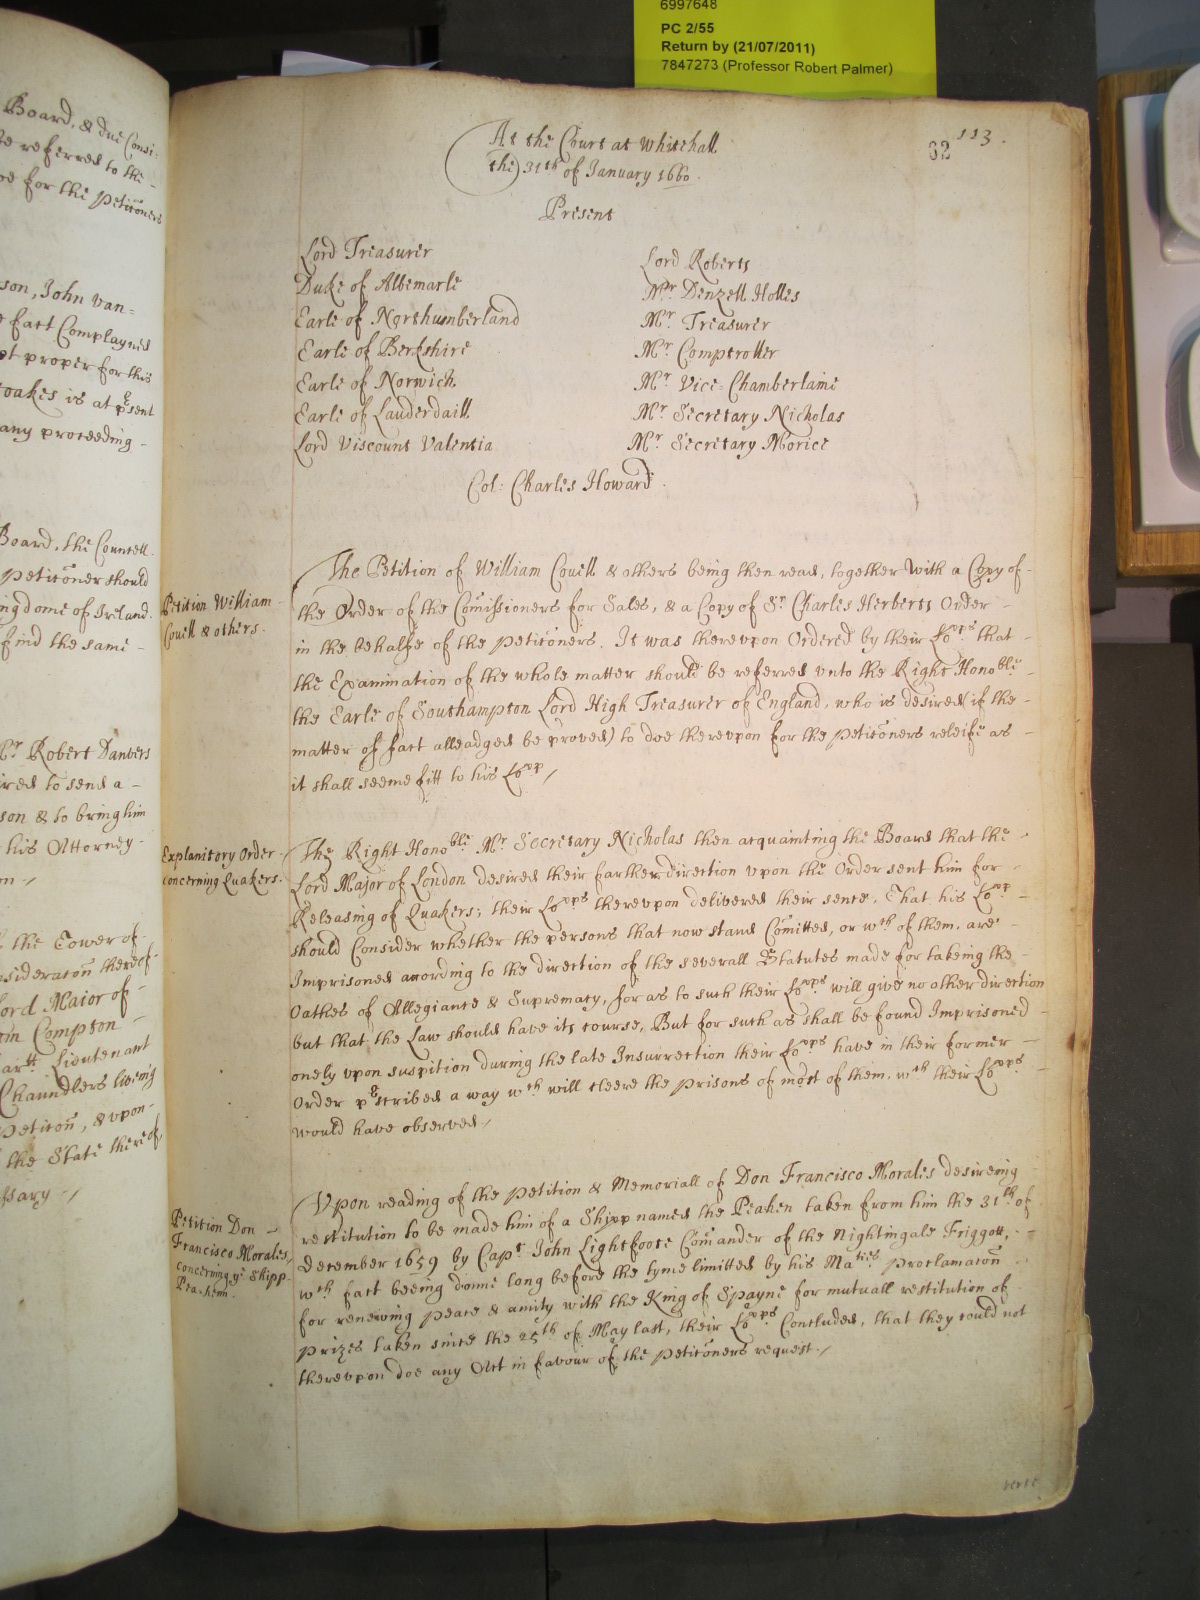 6997648
PC 2/55
Return by (21/07/2011)
7847273 (Professor Robert Palmer)
Board, & due Consi:
referred to the -
for the Petitōners
son, John Van=
fact Complayned
proper for this
oakes is at psent
any proceeding -
Board, the Councell
Petitōner should
ingdome of Ireland.
find the same -
Mr Robert Danvers
ired to send a -
son & to bring him
his Attorney -
the Tower of -
nsideratōn thereof -
Lord Maior of -
Compton -
Lieutenant
Chaundlers liveing
Petitōn, & upon -
the State thereof,
ssary -/
113.
62
At the Court at Whitehall
the 31th of January 1660.
Present
Lord Treasurer
Duke of Albemarle
Earle of Northumberland
Earle of Berkshire
Earle of Norwich
Earle of Lauderdaill
Lord Viscount Valentia
Lord Roberts
Mr Denzell Holles
Mr Treasurer
Mr Comptroller
Mr Vice-Chamberlaine
Mr Secretary Nicholas
Mr Secretary Morice
Col: Charles Howard.
Petition William -
Covell & others.
The Petition of William Covell & others being then read, together with a Copy of -
the Order of the Com̄issioners for Sales, & a Copy of Sr Charles Herberts Order -
in the behalfe of the Petitōners. It was therevpon Ordered by their Lopps that -
the Examination of the whole matter should be referred vnto the Right Honoble -
the Earle of Southampton Lord High Treasurer of England, who is desired (if the -
matter of fact alleadged be proved) to doe therevpon for the Petitōners releife as -
it shall seeme fitt to his Lopp /
Explanitory Order
concerning Quakers.
The Right Honoble Mr Secretary Nicholas then acquainting the Board that the -
Lord Major of London desired their farther direction vpon the Order sent him for -
Releasing of Quakers; their Lopps therevpon delivered their sence, That his Lopp -
should Consider whether the persons that now stand Com̄itted, or wch of them, are -
Imprisoned according to the direction of the severall Statutes made for takeing the -
Oathes of Allegiance & Supremacy, for as to such their Lopps will give no other direction
but that the Law should have its course, But for such as shall be found Imprisoned -
onely vpon suspition during the late Insurrection their Lopps have in their former -
Order pscribed a way wch will cleere the prisons of most of them, wch their Lopps -
would have observed /
Petition Don -
Francisco Morales,
concerning ye Shipp -
Peaken.
Vpon reading of the Petition & Memoriall of Don Francisco Morales desireing
restitution to be made him of a Shipp named the Peaken taken from him the 31th of
December 1659 by Capt John Lightfoote Com̄ander of the Nightingale Friggott, -
wch fact beeing donne long before the tyme limitted by his Maties Proclamatōn -
for renewing peace & amity with the King of Spayne for mutuall restitution of -
prizes taken since the 25th of May last, their Lopps Concluded, that they could not
therevpon doe any Act in favour of the Petitōners request. /